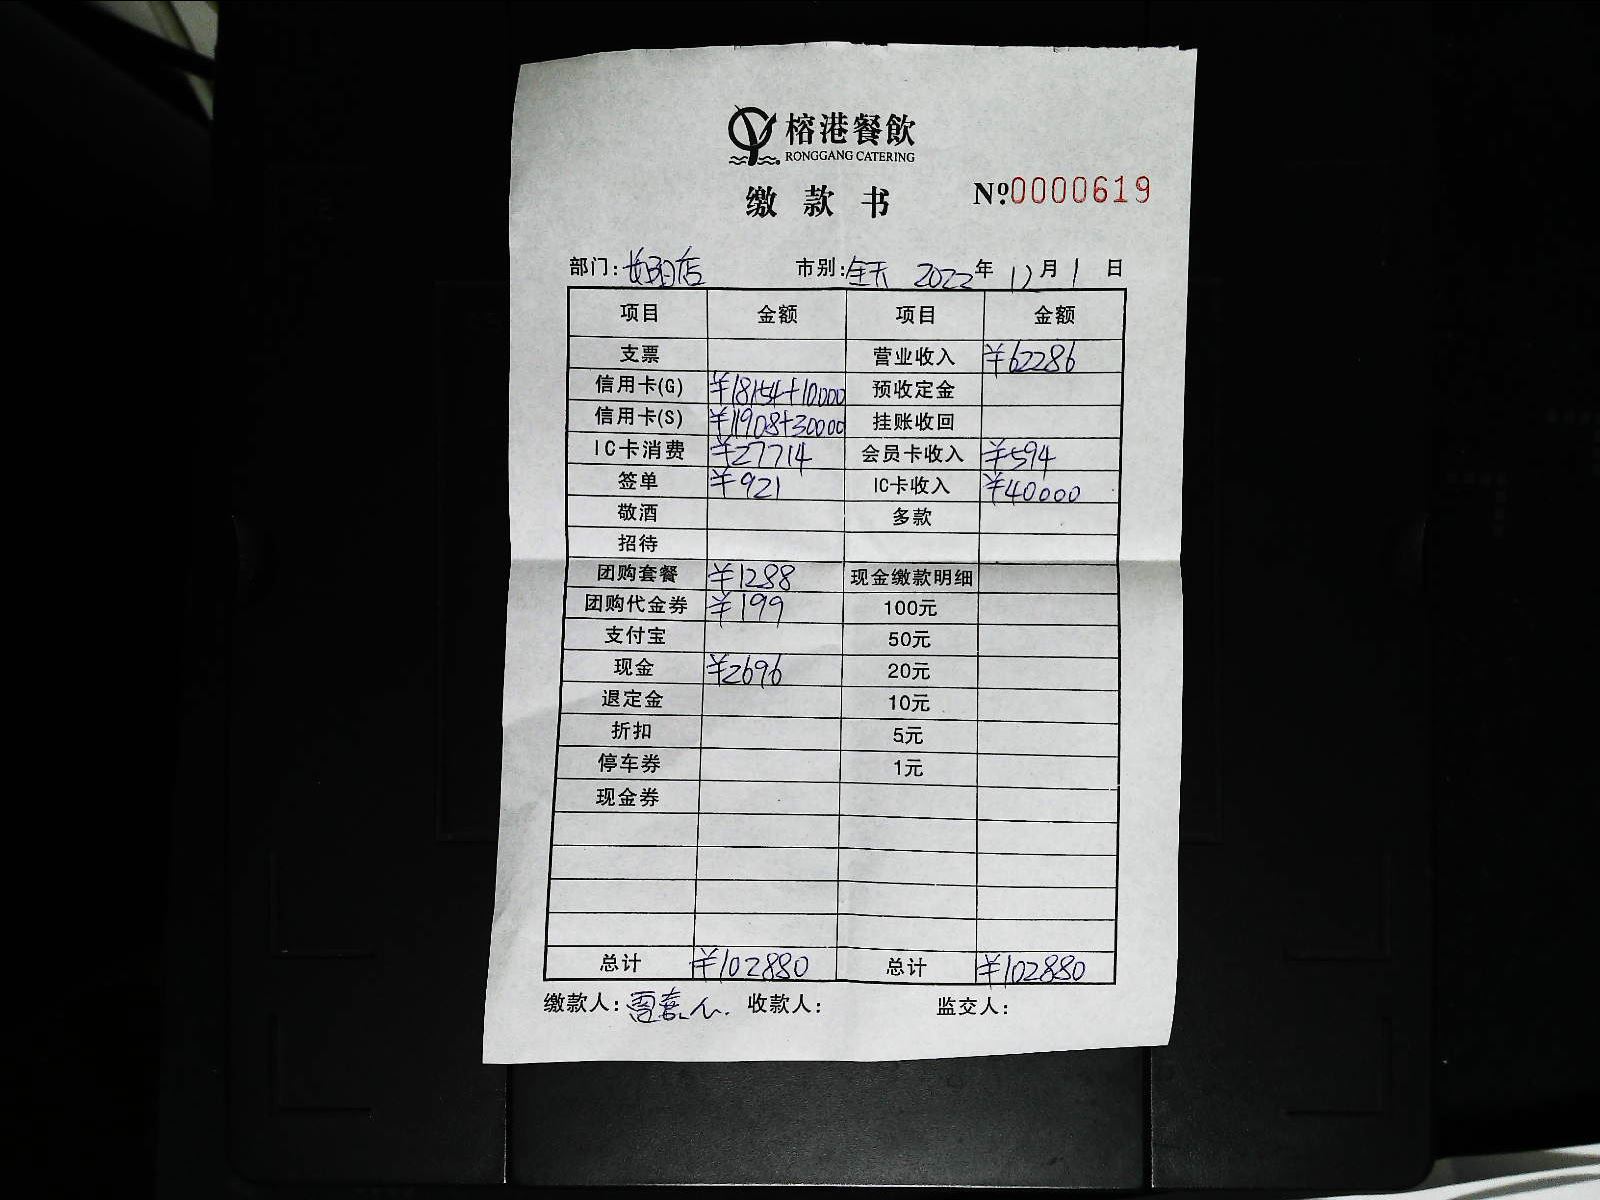 榕港餐飲
RONGGANG CATERING
缴款书 №0000619
部门: 店 市别: 全天 2022年12月1日
项目 金额 项目 金额
支票 营业收入 ¥62286
信用卡(G) ¥18154+10000 预收定金
信用卡(S) ¥11908+30000 挂账收回
IC卡消费 ¥27714 会员卡收入 ¥594
签单 ¥921 IC卡收入 ¥40000
敬酒 多款
招待
团购套餐 ¥1288 现金缴款明细
团购代金券 ¥199 100元
支付宝 50元
现金 ¥2696 20元
退定金 10元
折扣 5元
停车券 1元
现金券
总计 ¥102880 总计 ¥102880
缴款人: 收款人: 监交人: